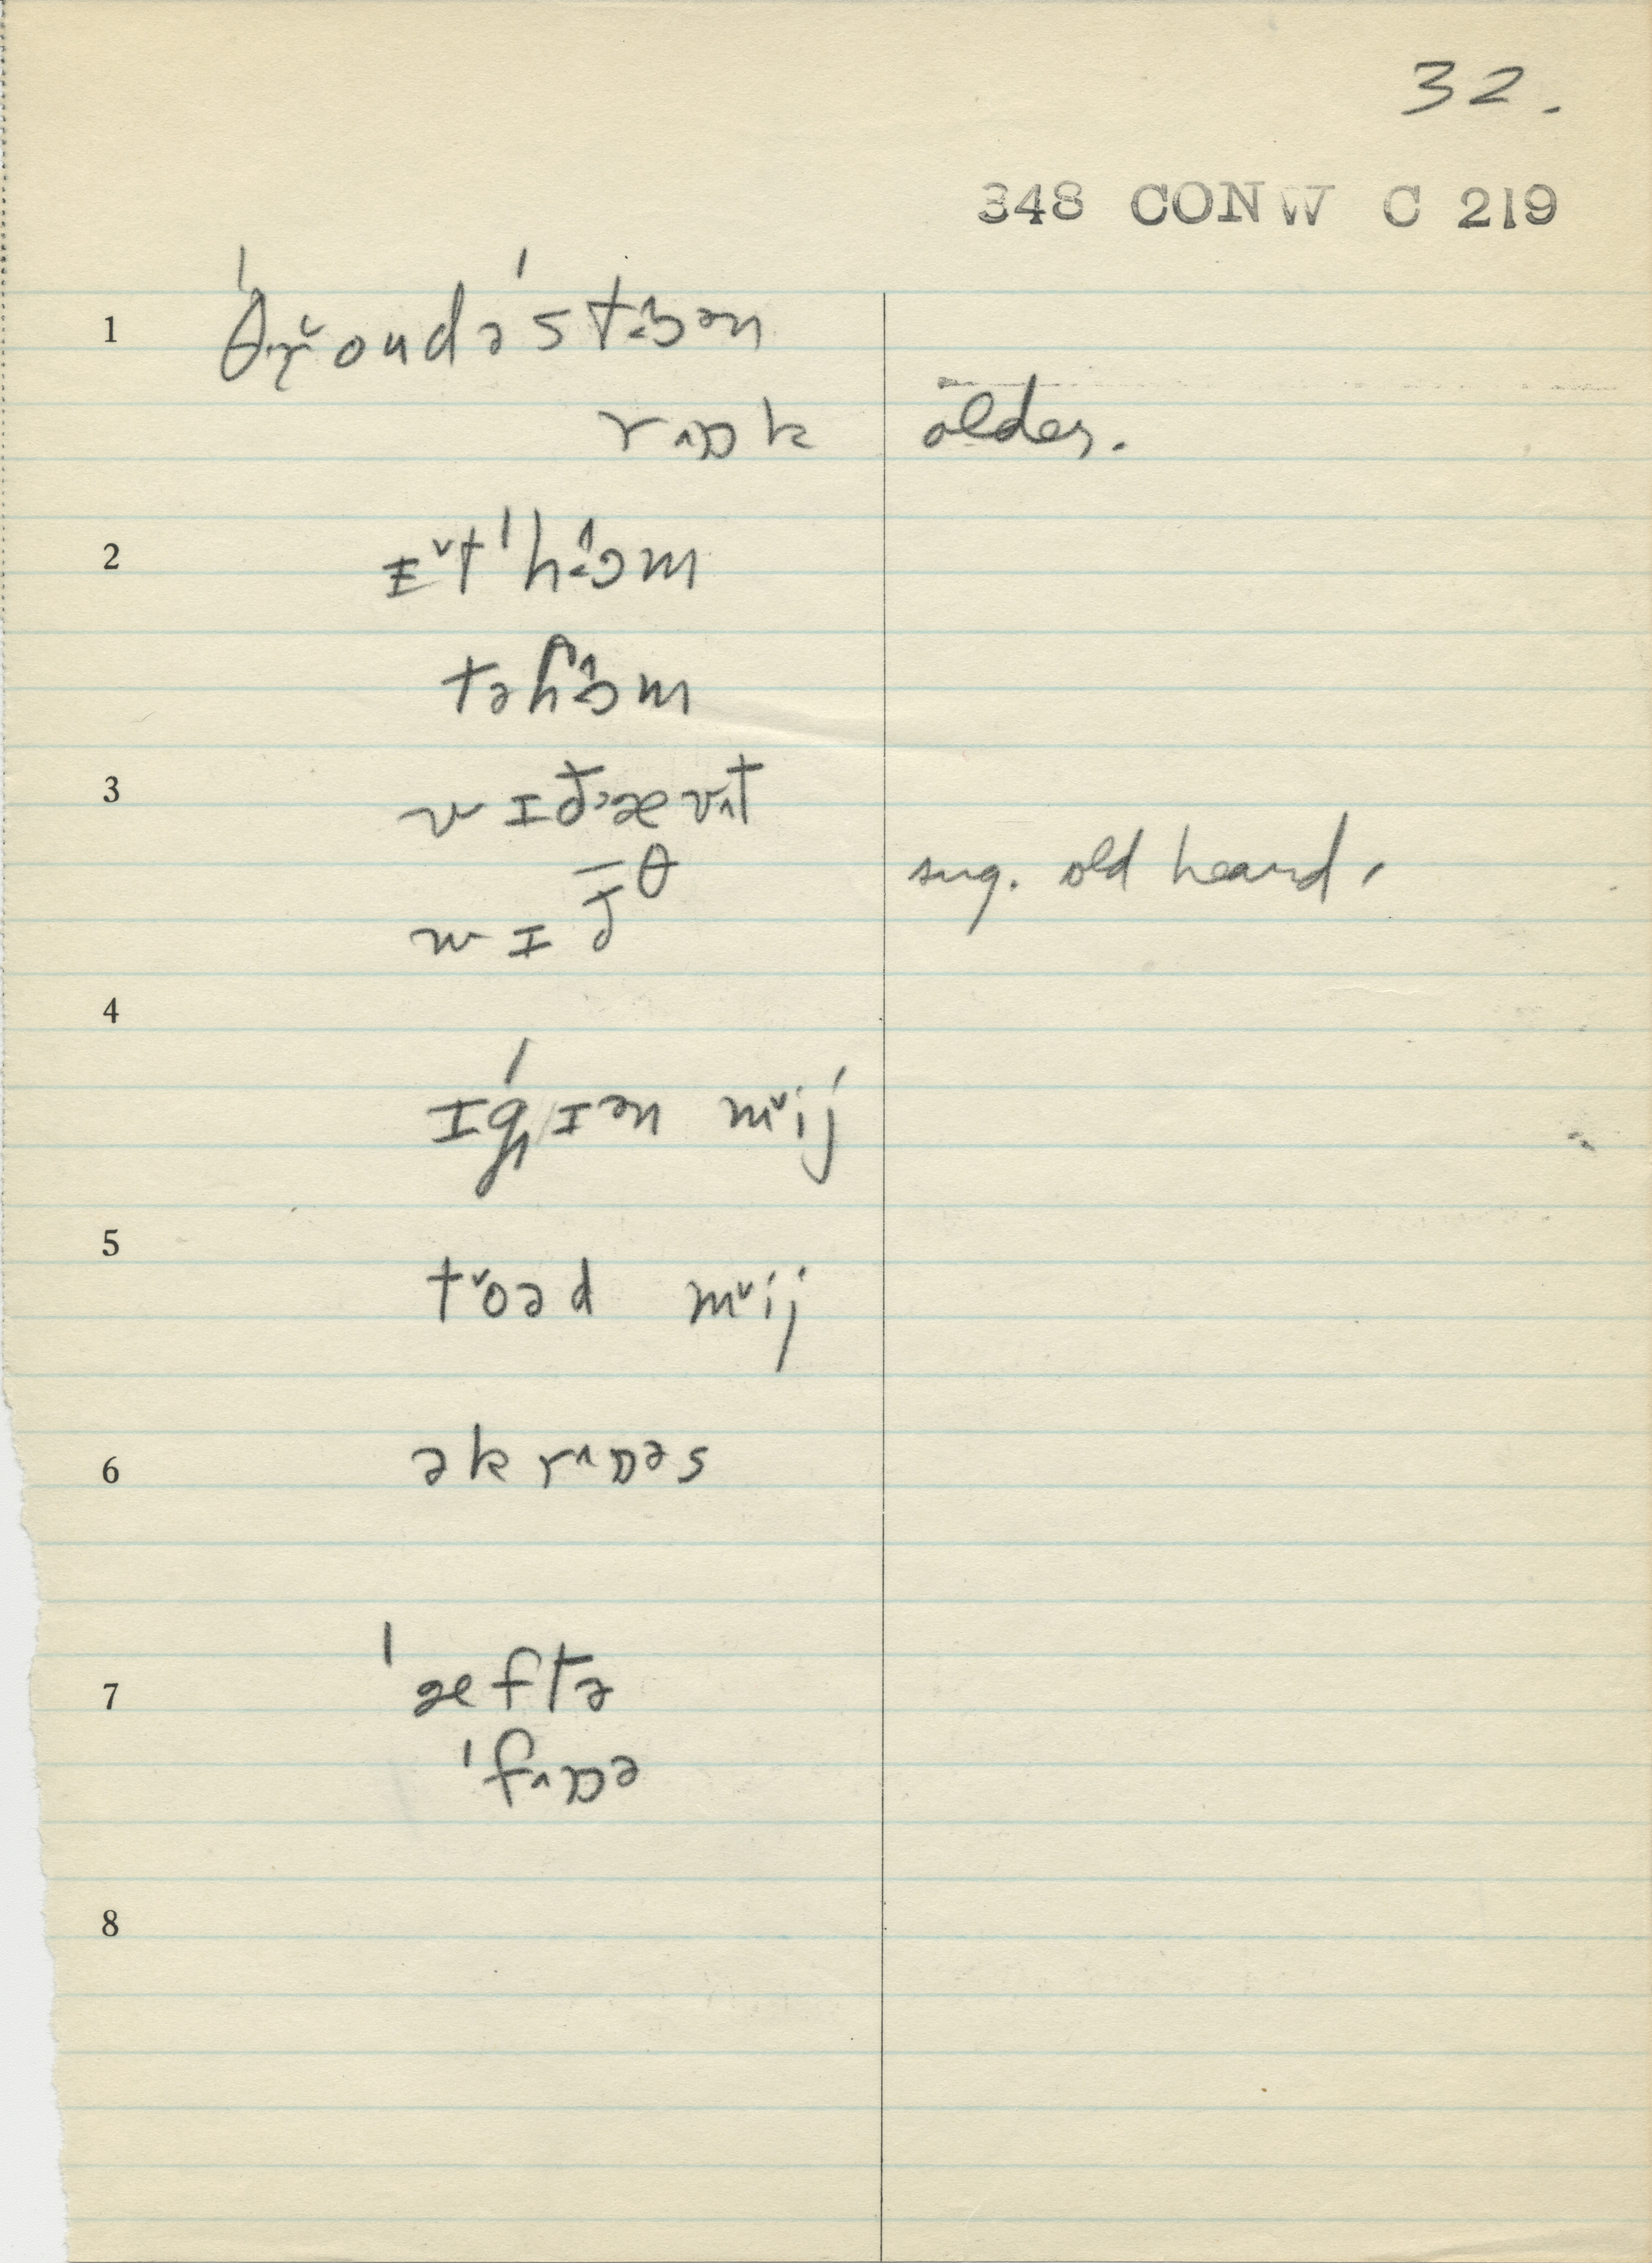 32.
348 CONW C 219
1 ˈθɤ˅oudəˈst˔ɔ^ən
rɒ^k older.
2 ɪ˅tˈhɔ^m
təhɔ^m
3 wɪðævt
wɪðθ sug. old heard.
4
ɪgɪən m˅ij
5
t˅oəd m˅ij
6 əkrɒ^əs
7 ˈæftə
ˈfɒ^ə
8